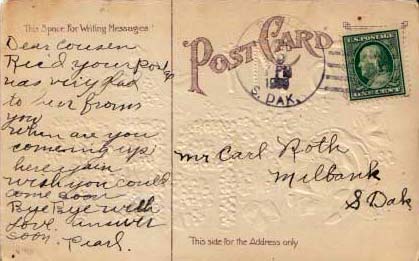 This Space for Writing Messages
Dear Cousen
Rec'd your Post
was very glad
to hear from
you
When are you
comeing up
here again
wish you could
come soon
Bye Bye with
love. answer
soon. Pearl.
POST CARD
S. DAK.
U.S. POSTAGE
Mr Carl Roth
Milbank
S Dak
This side for the Address only